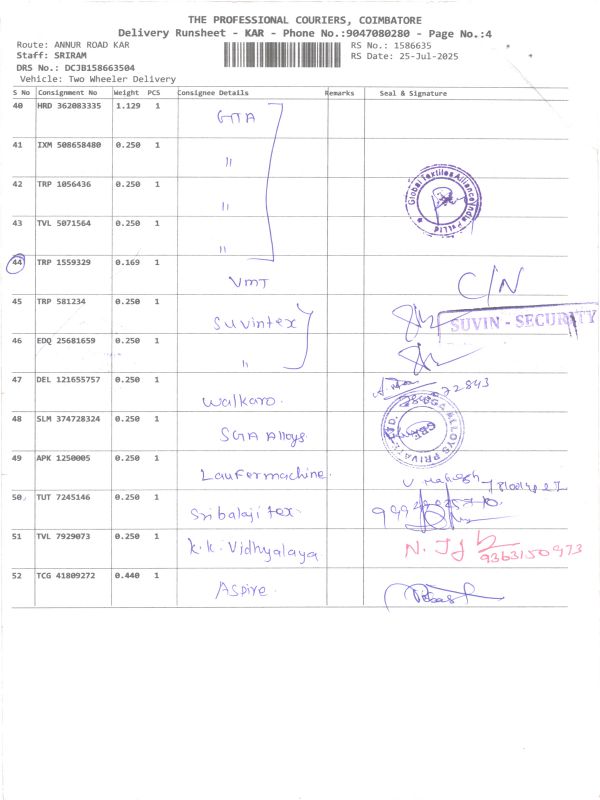 THE PROFESSIONAL COURIERS, COIMBATORE
Delivery Runsheet - KAR - Phone No.:9047080280 - Page No.:4
Route: ANNUR ROAD KAR RS No.: 1586635
Staff: SRIRAM RS Date: 25-Jul-2025
DRS No.: DCJB158663504
Vehicle: Two Wheeler Delivery
S No Consignment No Weight PCS Consignee Details Remarks Seal & Signature
40 HRD 362083335 1.129 1 GTA
41 IXM 508658480 0.250 1 "
42 TRP 1056436 0.250 1 " Global Textiles Alliance India Pvt Ltd
43 TVL 5071564 0.250 1 "
44 TRP 1559329 0.169 1 VMT C/N
45 TRP 581234 0.250 1 Suvintex SUVIN - SECURITY
46 EDQ 25681659 0.250 1 "
47 DEL 121655757 0.250 1 Walkaro. 72843
48 SLM 374728324 0.250 1 SGA Alloys. SGA ALLOYS PRIVATE LTD. CBE
49 APK 1250005 0.250 1 Laufermachine.
50 TUT 7245146 0.250 1 Sribalaji tex.
51 TVL 7929073 0.250 1 K.K. Vidhyalaya 9363150973
52 TCG 41809272 0.440 1 Aspire.